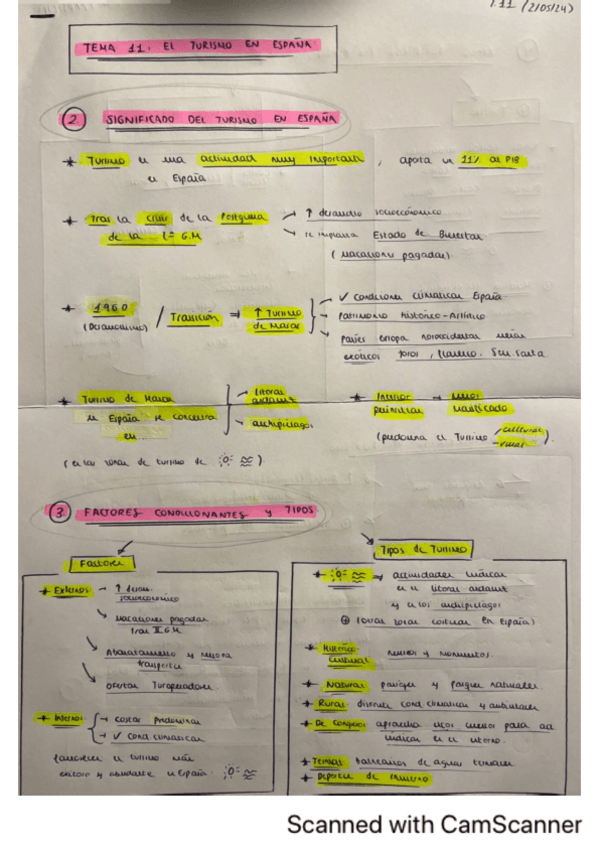 T.11 (2/05/24)
TEMA 11: EL TURISMO EN ESPAÑA
2 SIGNIFICADO DEL TURISMO EN ESPAÑA
* Turismo es una actividad muy importante, aporta un 11% al PIB
en España
* Tras la Crisis de la Postguerra → ↑ desarrollo socioeconómico
de la 2ª G.M → se implanta Estado de Bienestar
(vacaciones pagadas)
* 1960 / Transición ⇒ ↑ Turismo } → ✓ condiciones climáticas España
(Desarrollismo) de Masas → Patrimonio Histórico-Artístico
→ Países europa noroccidental
exóticos toros, flamenco, Sem. Santa
* Turismo de Masas } → litoral * Interior → menos
en España se concentra → archipiélagos peninsular masificado
en... (predomina el Turismo cultural - rural).
(en las zonas de turismo de ☼ ≈)
3 FACTORES CONDICIONANTES y TIPOS
Factores
* Externos → ↑ desarr.
socioeconómico
→ Vacaciones pagadas
tras II G.M
→ Abaratamiento y mejora
transportes
→ Ofertas Turoperadores
* Internos → costas peninsular
→ ✓ cond. climáticas
favorecen el turismo más
y abundante en España: ☼ ≈
Tipos de Turismo
* ☼ ≈ ⇒ actividades lúdicas
en el litoral
y en los archipiélagos
⊕ (otras zonas costeras en España)
* Histórico museos y monumentos.
cultural
* Natural paisajes y parques naturales.
* Rural: disfruta cond. climáticas y ambientales
* De Congresos aprovecha para act.
lúdicas en el entorno.
* Termas: balnearios de aguas termales
* Deportes de invierno
Scanned with CamScanner